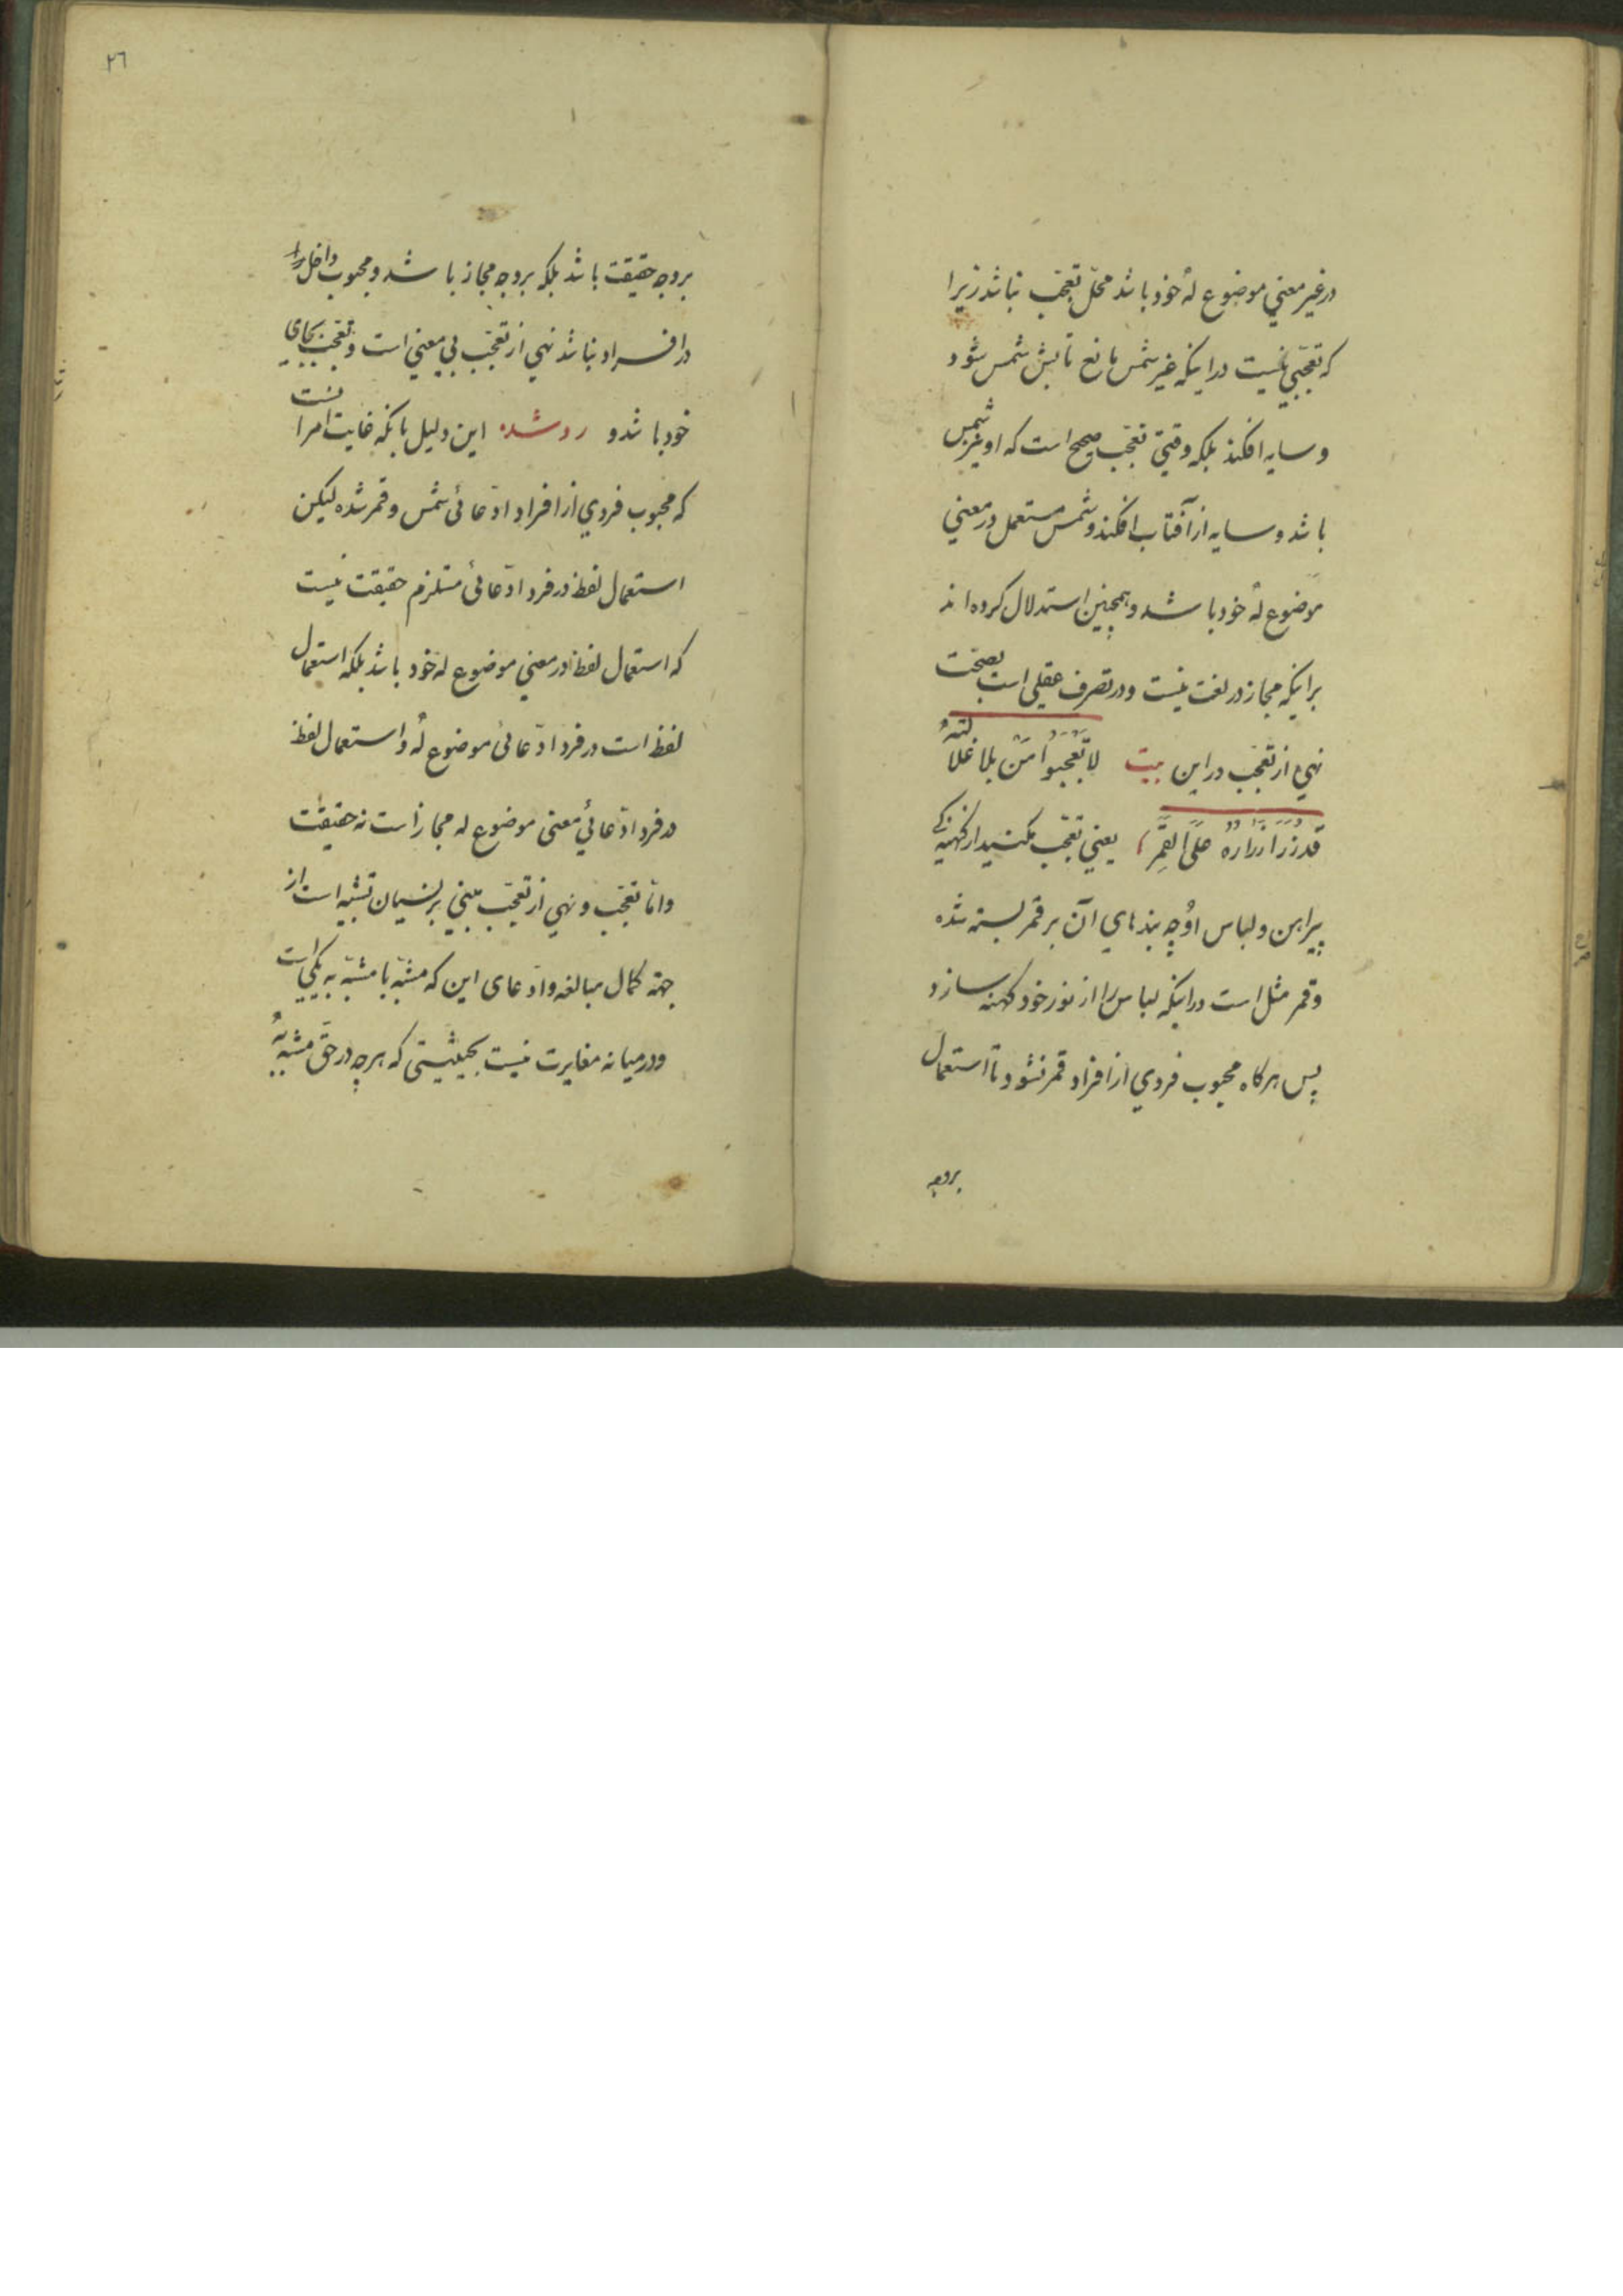 در غیر معنی موضوع لهُ خود باشد محلّ تعجّب نباشد زیرا
که تعجّبی نیست در اینکه غیر شمس مانع تابش شمس شود
و سایه افکند بلکه وقتی تعجّب صحیح است که او غیر شمس
باشد و سایه از آفتاب افکند و شمس مستعمل در معنی
موضوع لهُ خود باشد و همچنین استدلال کرده اند
بر اینکه مجاز در لغت نیست و در تصرف عقلی است بصحّت
نهی از تعجّب در این بیت لا تَعجَبُوا مِن بلا غلا لتهُ
قَد زُرَّ ازرارهُ عَلَی القَمَرِ یعنی تعجّب مکنید از کهنه‌کی
پیراهن و لباس او چه بندهای آن بر قمر بسته شده
و قمر مثل است در اینکه لباس را از نور خود کهنه سازد
پس هرکاه محبوب فردی از افراد قمر نشود تا استعمال
بروجه
٢٦
بروجه حقیقت باشد بلکه بروجه مجاز باشد و محبوب داخل
در افراد نباشد نهی از تعجّب بی معنی است و تعجّب بجای
خود باشد و رد شده این دلیل بانکه غایت امر انست
که محبوب فردی از افراد ادّعائی شمس و قمر شده لیکن
استعمال لفظ در فرد ادّعائی مستلزم حقیقت نیست
که استعمال لفظ در معنی موضوع له خود باشد بلکه استعمال
لفظ است در فرد ادّعائی موضوع لهُ و استعمال لفظ
در فرد ادّعائی معنی موضوع له مجاز است نه حقیقت
و امّا تعجّب و نهی از تعجّب مبنی بر نسیان تشبیه است از
جهة کمال مبالغه و ادّعای این که مشبّه با مشبّه به یکی است
و در میانه مغایرت نیست بحیثیتی که هرچه در حقّ مشبّه بهُ